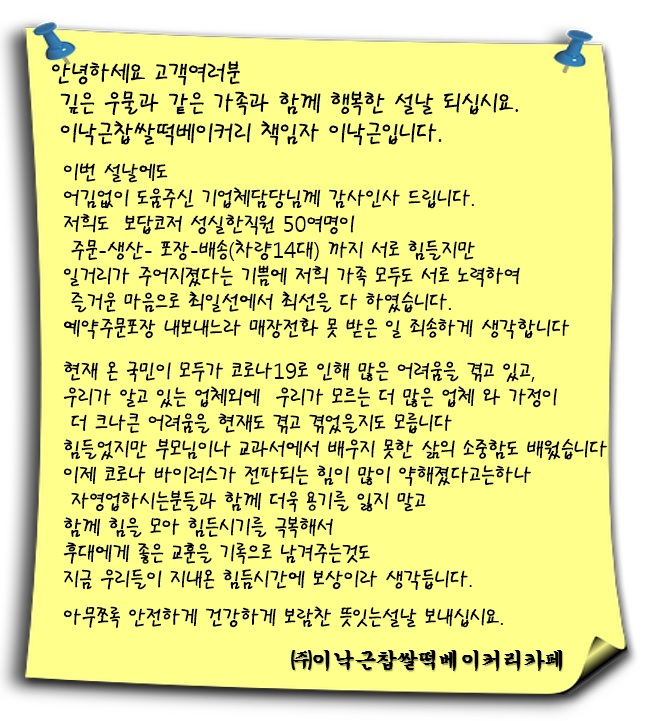 안녕하세요 고객여러분
깊은 우물과 같은 가족과 함께 행복한 설날 되십시요.
이낙근찹쌀떡베이커리 책임자 이낙근입니다.
이번 설날에도
어김없이 도움주신 기업체담당님께 감사인사 드립니다.
저희도 보답코저 성실한직원 50여명이
주문-생산- 포장-배송(차량14대) 까지 서로 힘들지만
일거리가 주어지졌다는 기쁨에 저희 가족 모두도 서로 노력하여
즐거운 마음으로 최일선에서 최선을 다 하였습니다.
예약주문포장 내보내느라 매장전화 못 받은 일 죄송하게 생각합니다
현재 온 국민이 모두가 코로나19로 인해 많은 어려움을 겪고 있고,
우리가 알고 있는 업체외에 우리가 모르는 더 많은 업체 와 가정이
더 크나큰 어려움을 현재도 겪고 겪었을지도 모릅니다
힘들었지만 부모님이나 교과서에서 배우지 못한 삶의 소중함도 배웠습니다
이제 코로나 바이러스가 전파되는 힘이 많이 약해졌다고는하나
자영업하시는분들과 함께 더욱 용기를 잃지 말고
함께 힘을 모아 힘든시기를 극복해서
후대에게 좋은 교훈을 기록으로 남겨주는것도
지금 우리들이 지내온 힘듬시간에 보상이라 생각듭니다.
아무쪼록 안전하게 건강하게 보람찬 뜻잇는설날 보내십시요.
㈜이낙근찹쌀떡베이커리카페